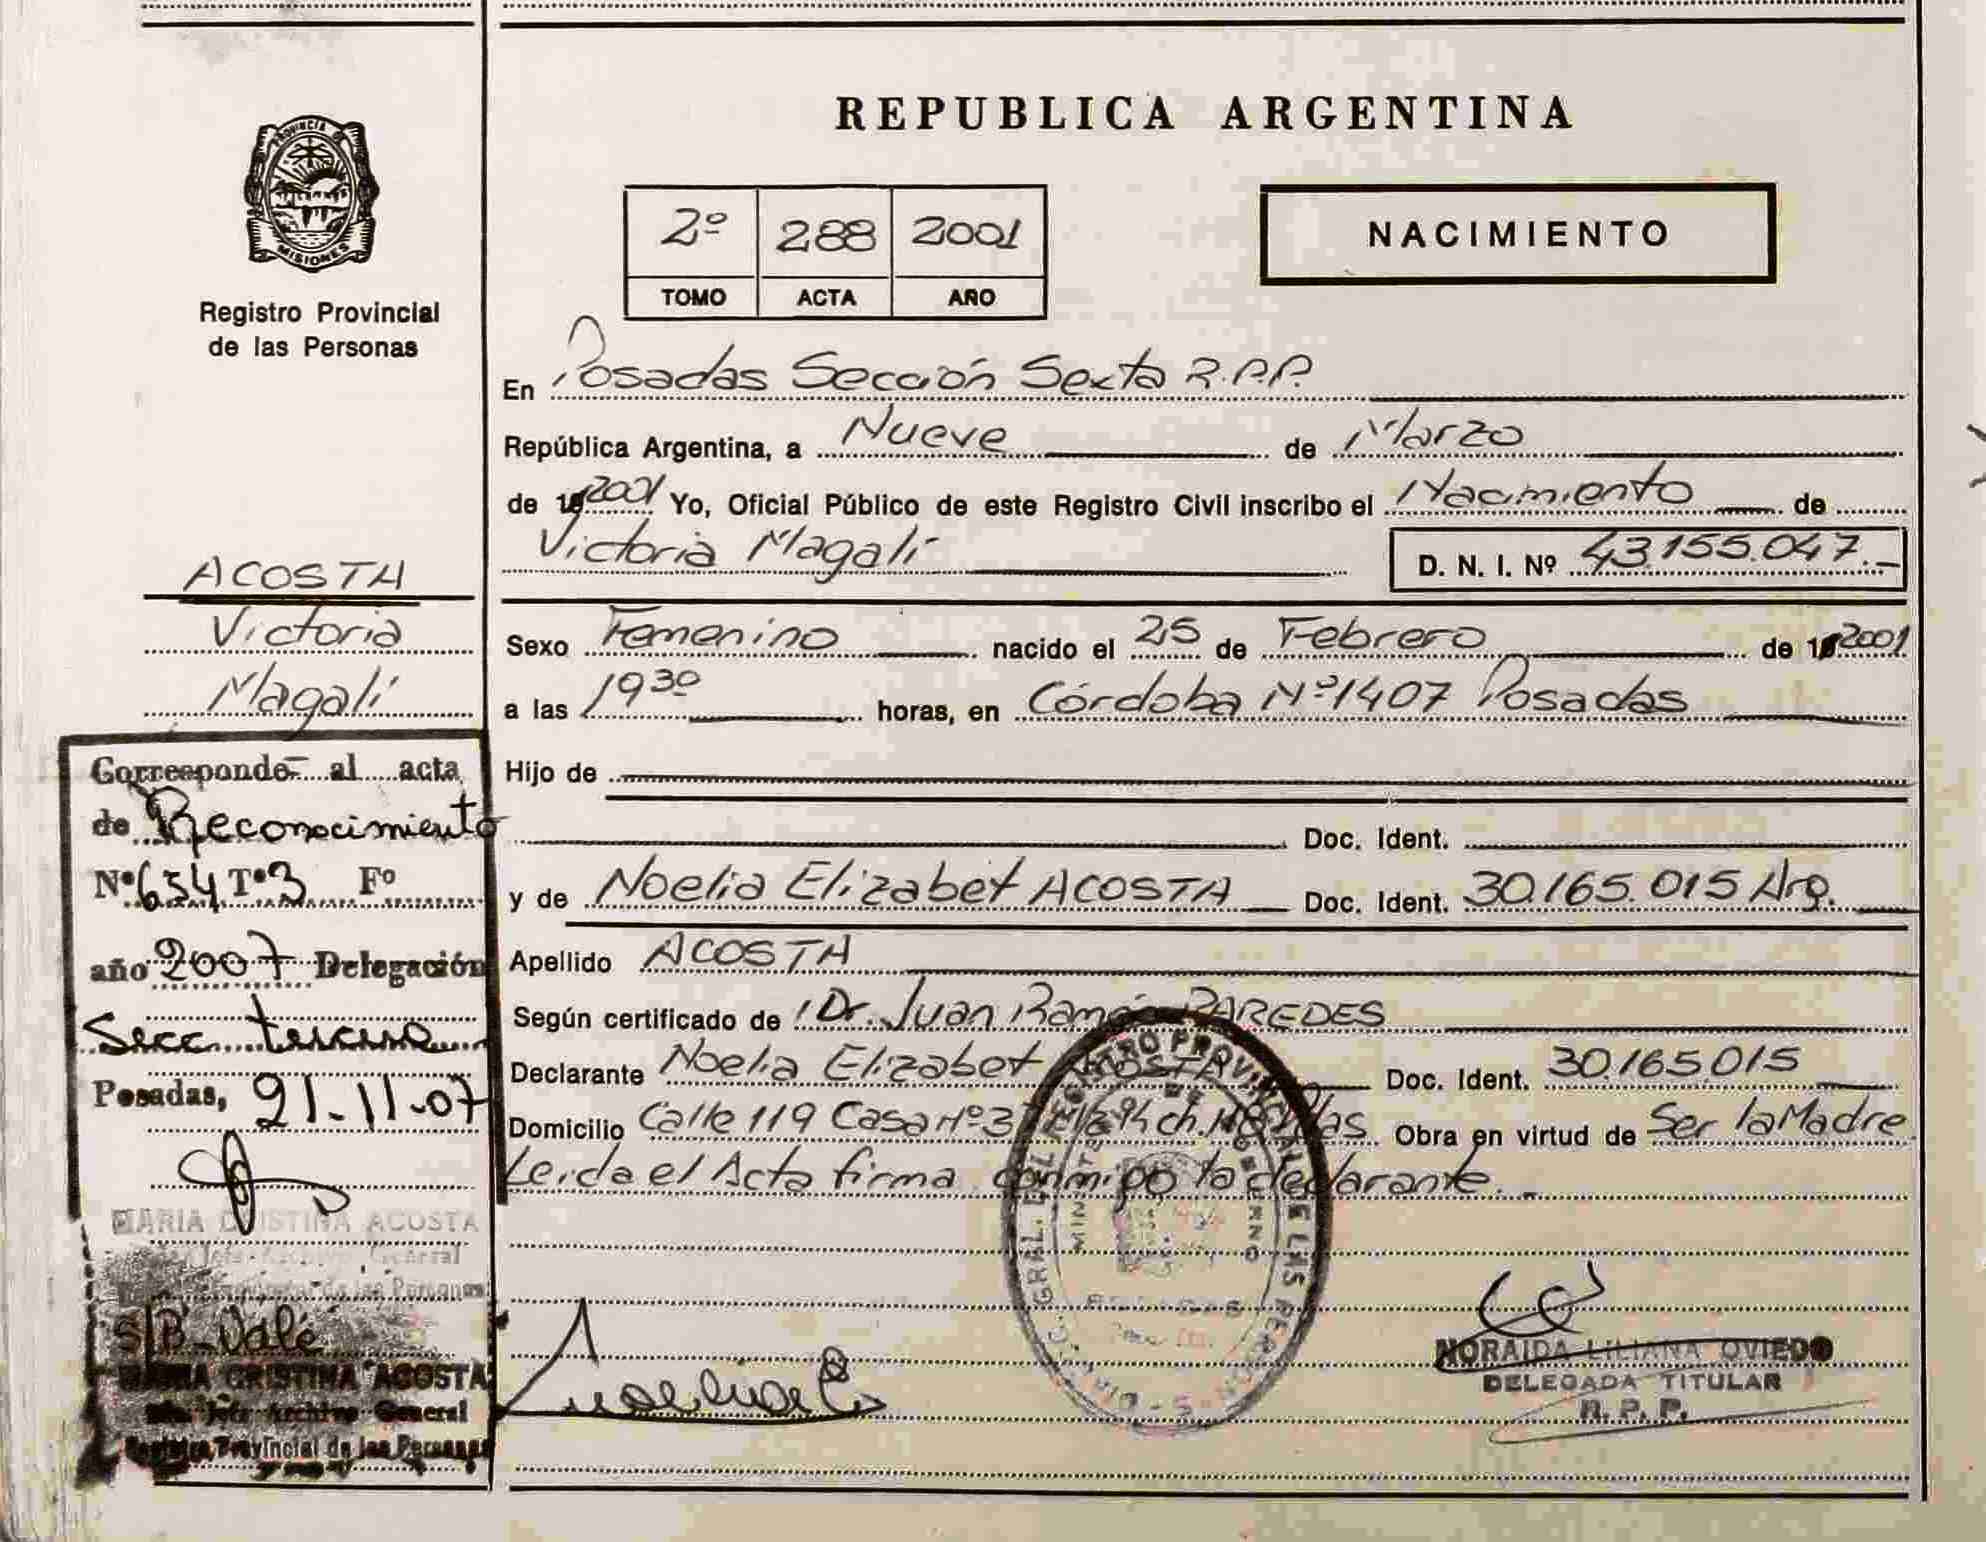 REPUBLICA ARGENTINA
PROVINCIA DE
MISIONES
Registro Provincial
de las Personas
2º 288 2001
TOMO ACTA AÑO
NACIMIENTO
En Posadas Sección Sexta R.P.P.
República Argentina, a Nueve de Marzo
de 2001 Yo, Oficial Público de este Registro Civil inscribo el Nacimiento de
Victoria Magalí D. N. I. Nº 43.155.047.-
ACOSTA
Victoria
Magalí
Sexo Femenino nacido el 25 de Febrero de 2001
a las 19³⁰ horas, en Córdoba Nº 1407 Posadas
Hijo de
Doc. Ident.
y de Noelia Elizabet ACOSTA Doc. Ident. 30.165.015 Arg.
Apellido ACOSTA
Según certificado de Dr. Juan Ramón PAREDES
Declarante Noelia Elizabet ACOSTA Doc. Ident. 30.165.015
Domicilio Calle 119 Casa Nº 37 94 ch. Obra en virtud de Ser la Madre
Leída el Acta firma conmigo la declarante.-
Corresponde al acta
de Reconocimiento
Nº 654 Tº 3 Fº
año 2007 Delegación
Secc. tercera
Posadas, 21-11-07
MARIA CRISTINA ACOSTA
Jefe Archivo General
Provincial de las Personas
S/B Vale
MARIA CRISTINA ACOSTA
Jefe Archivo General
Registro Provincial de las Personas
GRAL. DEL REGISTRO PROVINCIAL DE LAS PERSONAS
NORAIDA LILIANA OVIEDO
DELEGADA TITULAR
R. P. P.